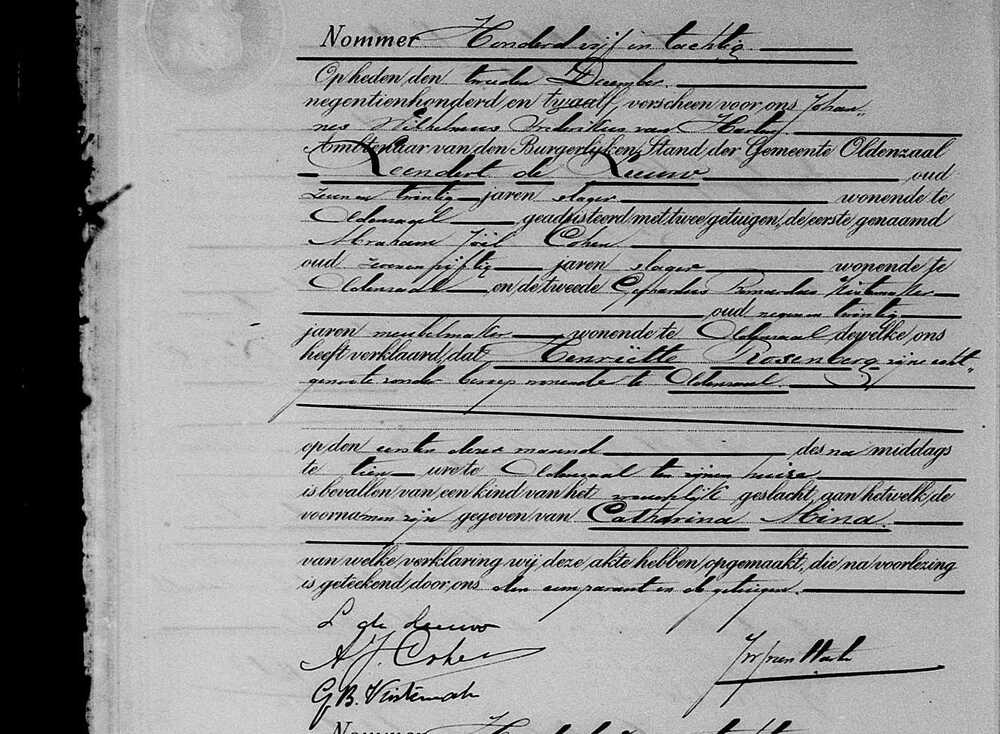 Nommer Honderd vijf en tachtig
Op heden den tweeden December
negentienhonderd en twaalf, verscheen voor ons Johan„
nes Wilhelmus Frederikus van
Ambtenaar van den Burgerlijken Stand der Gemeente Oldenzaal
Leendert de Leeuw oud
zeven en twintig jaren slager wonende te
Oldenzaal geadsisteerd met twee getuigen, de eerste genaamd
Abraham Joël Cohen
oud zeven en vijftig jaren slager wonende te
Oldenzaal en de tweede Gerhardus Bernardus
oud negen en twintig
jaren meubelmaker wonende te Oldenzaal dewelke ons
heeft verklaard, dat Henriëtte Rosenberg zijne echt„
genoote zonder beroep wonende te Oldenzaal
op den eersten dezer maand des na middags
te tien ure te Oldenzaal ten zijnen huize
is bevallen van een kind van het vrouwelijk geslacht, aan hetwelk de
voornamen zijn gegeven van Catharina Mina
van welke verklaring wij deze akte hebben opgemaakt, die na voorlezing
is geteekend door ons den comparant en de getuigen.
L de Leeuw
A. J. Cohen
G. B.
Nommer Honderd